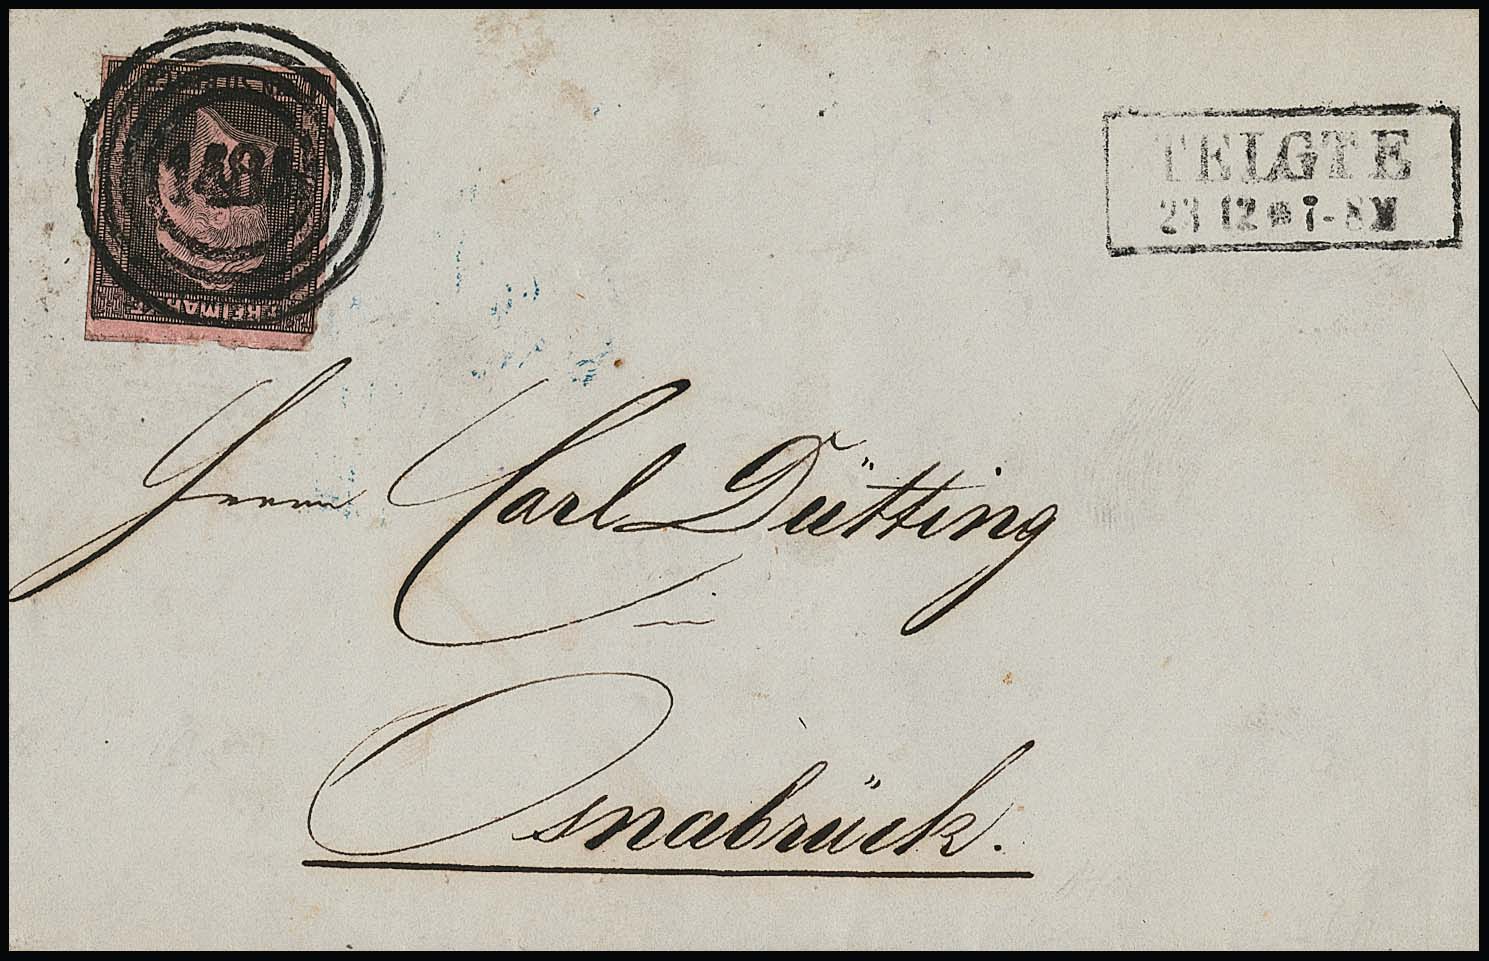 TELGTE
23 12 * 7-8
FREIMARKE
Herrn Carl Dütting
in
Osnabrück.